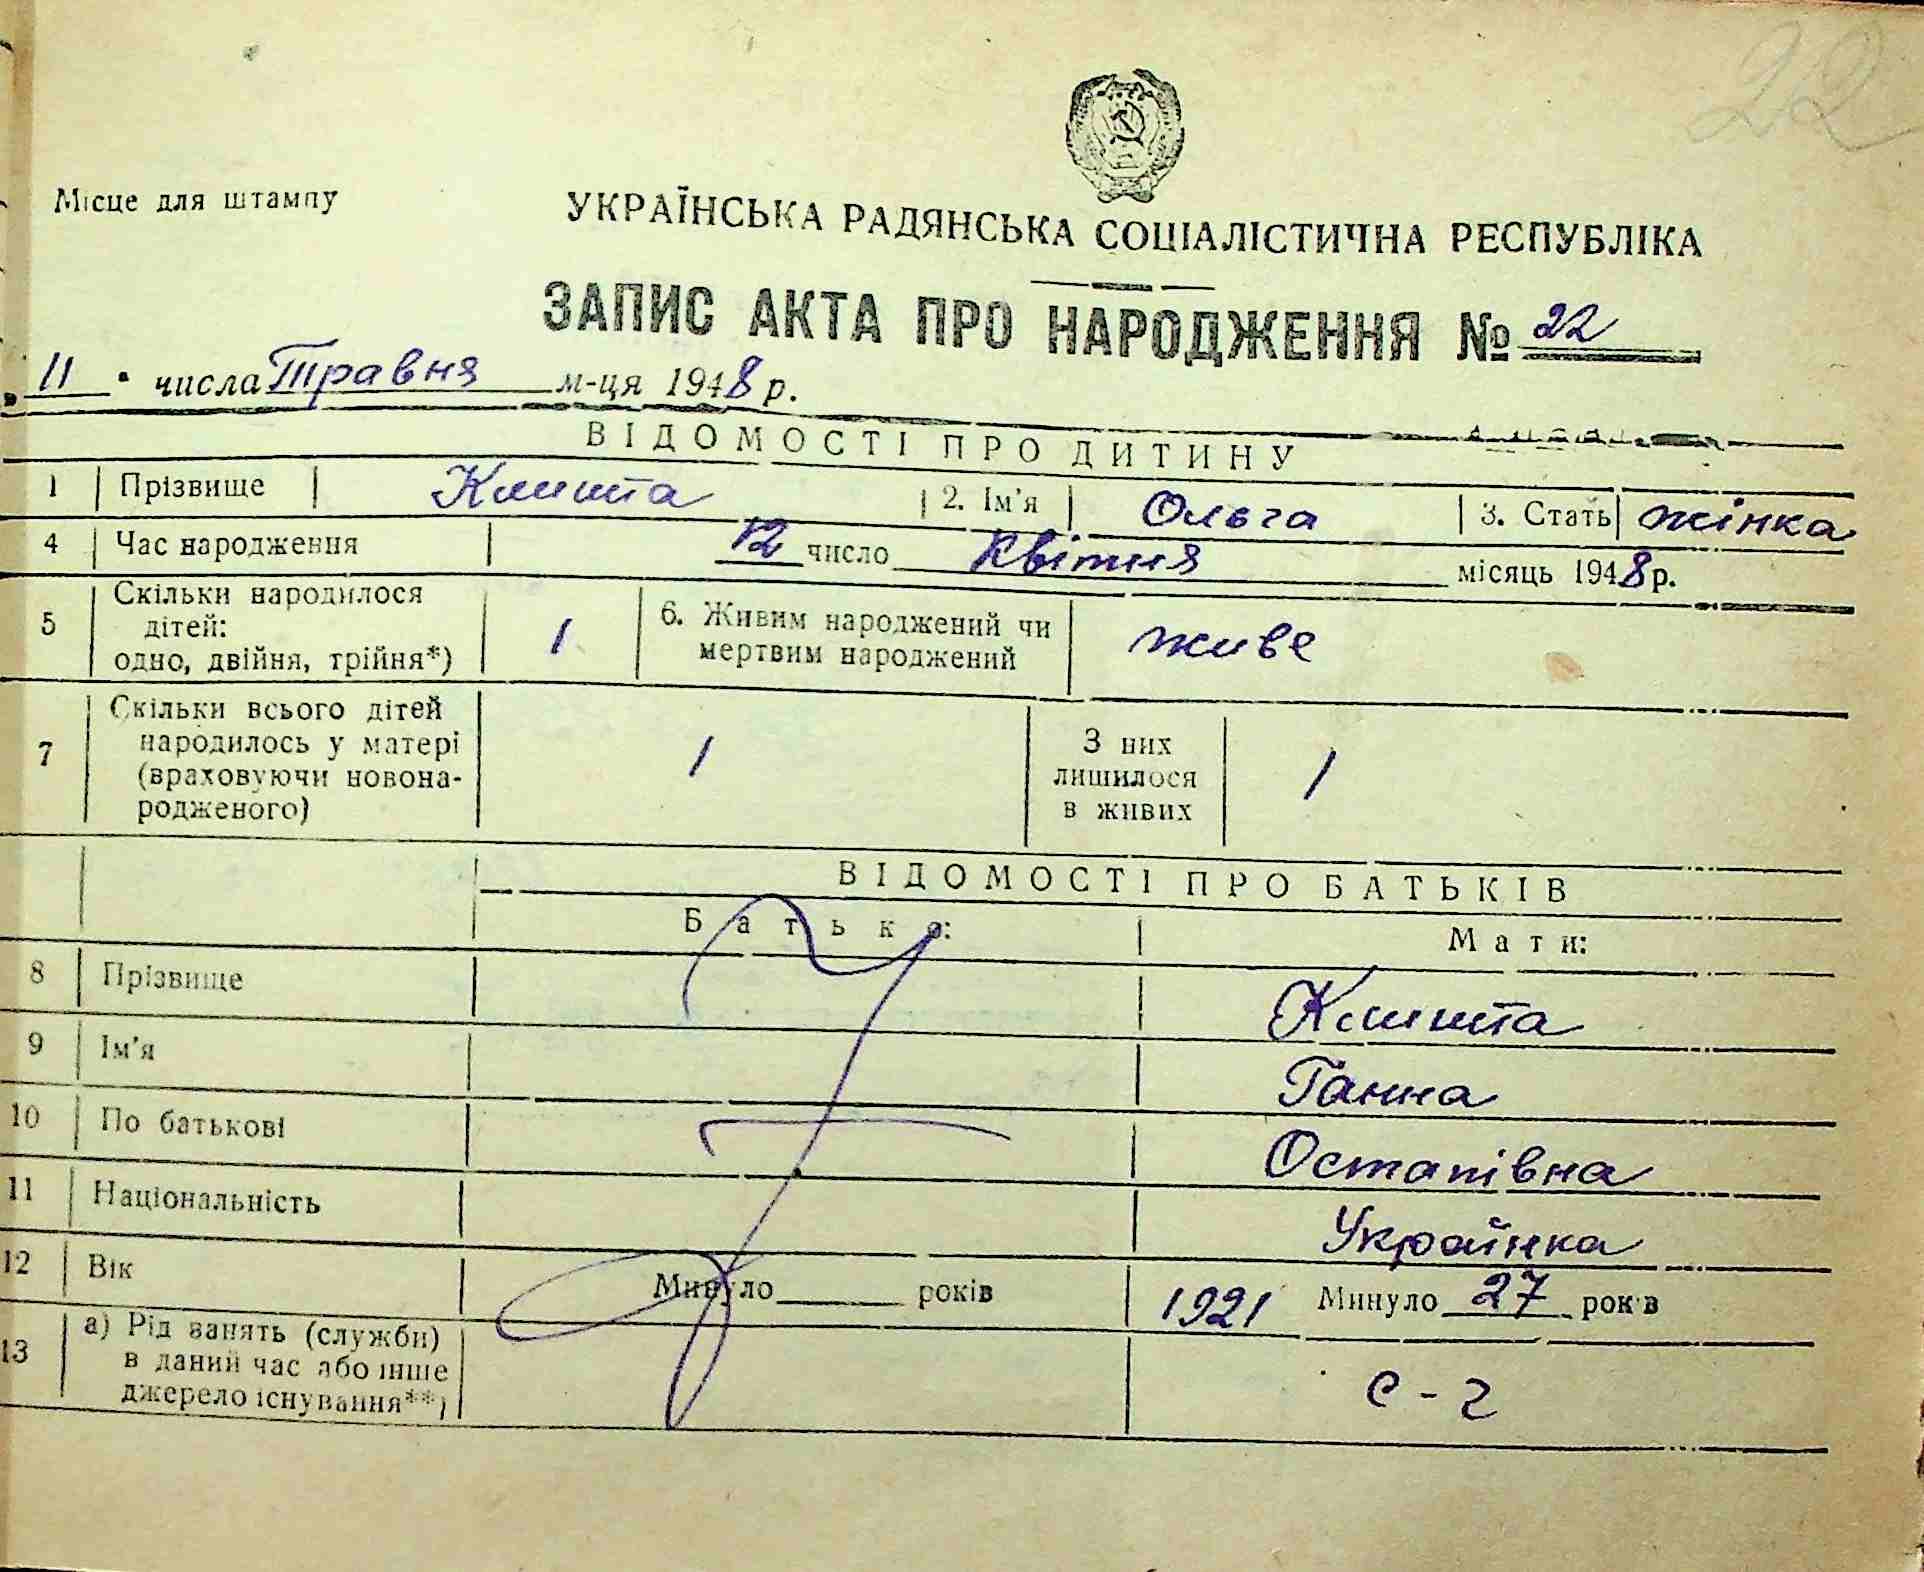 22
Місце для штампу
УКРАЇНСЬКА РАДЯНСЬКА СОЦІАЛІСТИЧНА РЕСПУБЛІКА
ЗАПИС АКТА ПРО НАРОДЖЕННЯ № 22
„ 11 " числа Травня м-ця 1948 р.
ВІДОМОСТІ ПРО ДИТИНУ
1 Прізвище 2. Ім'я Ольга 3. Стать жінка
4 Час народження 12 число Квітня місяць 1948 р.
5 Скільки народилося дітей: одно, двійня, трійня*) 1 6. Живим народжений чи мертвим народжений живе
7 Скільки всього дітей народилось у матері (враховуючи новонародженого) 1 З них лишилося в живих 1
ВІДОМОСТІ ПРО БАТЬКІВ
Батько: Мати:
8 Прізвище
9 Ім'я Ганна
10 По батькові Остапівна
11 Національність Українка
12 Вік Минуло ____ років 1921 Минуло 27 років
13 а) Рід занять (служби) в даний час або інше джерело існування**) с-г